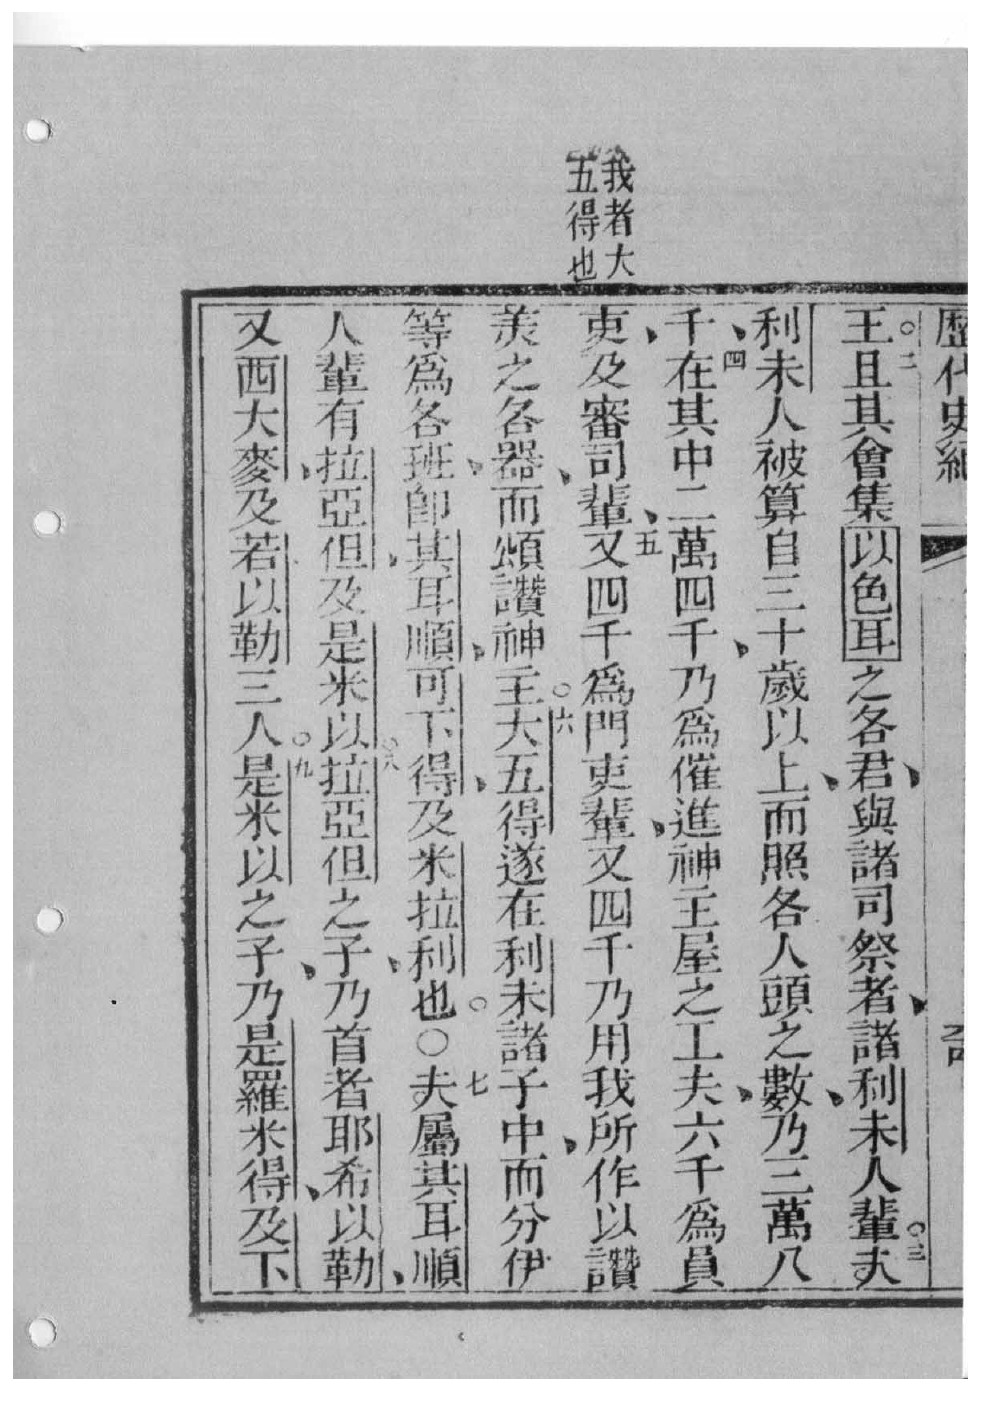 我者大
五得也
歷代史紀
○二
王且其會集以色耳之各君與諸司祭者諸利未人輩○三夫
利未人被算自三十歲以上而照各人頭之數乃三萬八
千四在其中二萬四千乃爲催進神主屋之工夫六千爲員
吏及審司輩五又四千爲門吏輩又四千乃用我所作以讚
羙之各器而頌讚神主○六大五得遂在利未諸子中而分伊
等爲各班卽其耳順可下得及米拉利也○○七夫屬其耳順
人輩有拉亞但及是米以○八拉亞但之子乃首者耶希以勒
又西大麥及若以勒三人○九是米以之子乃是羅米得及下